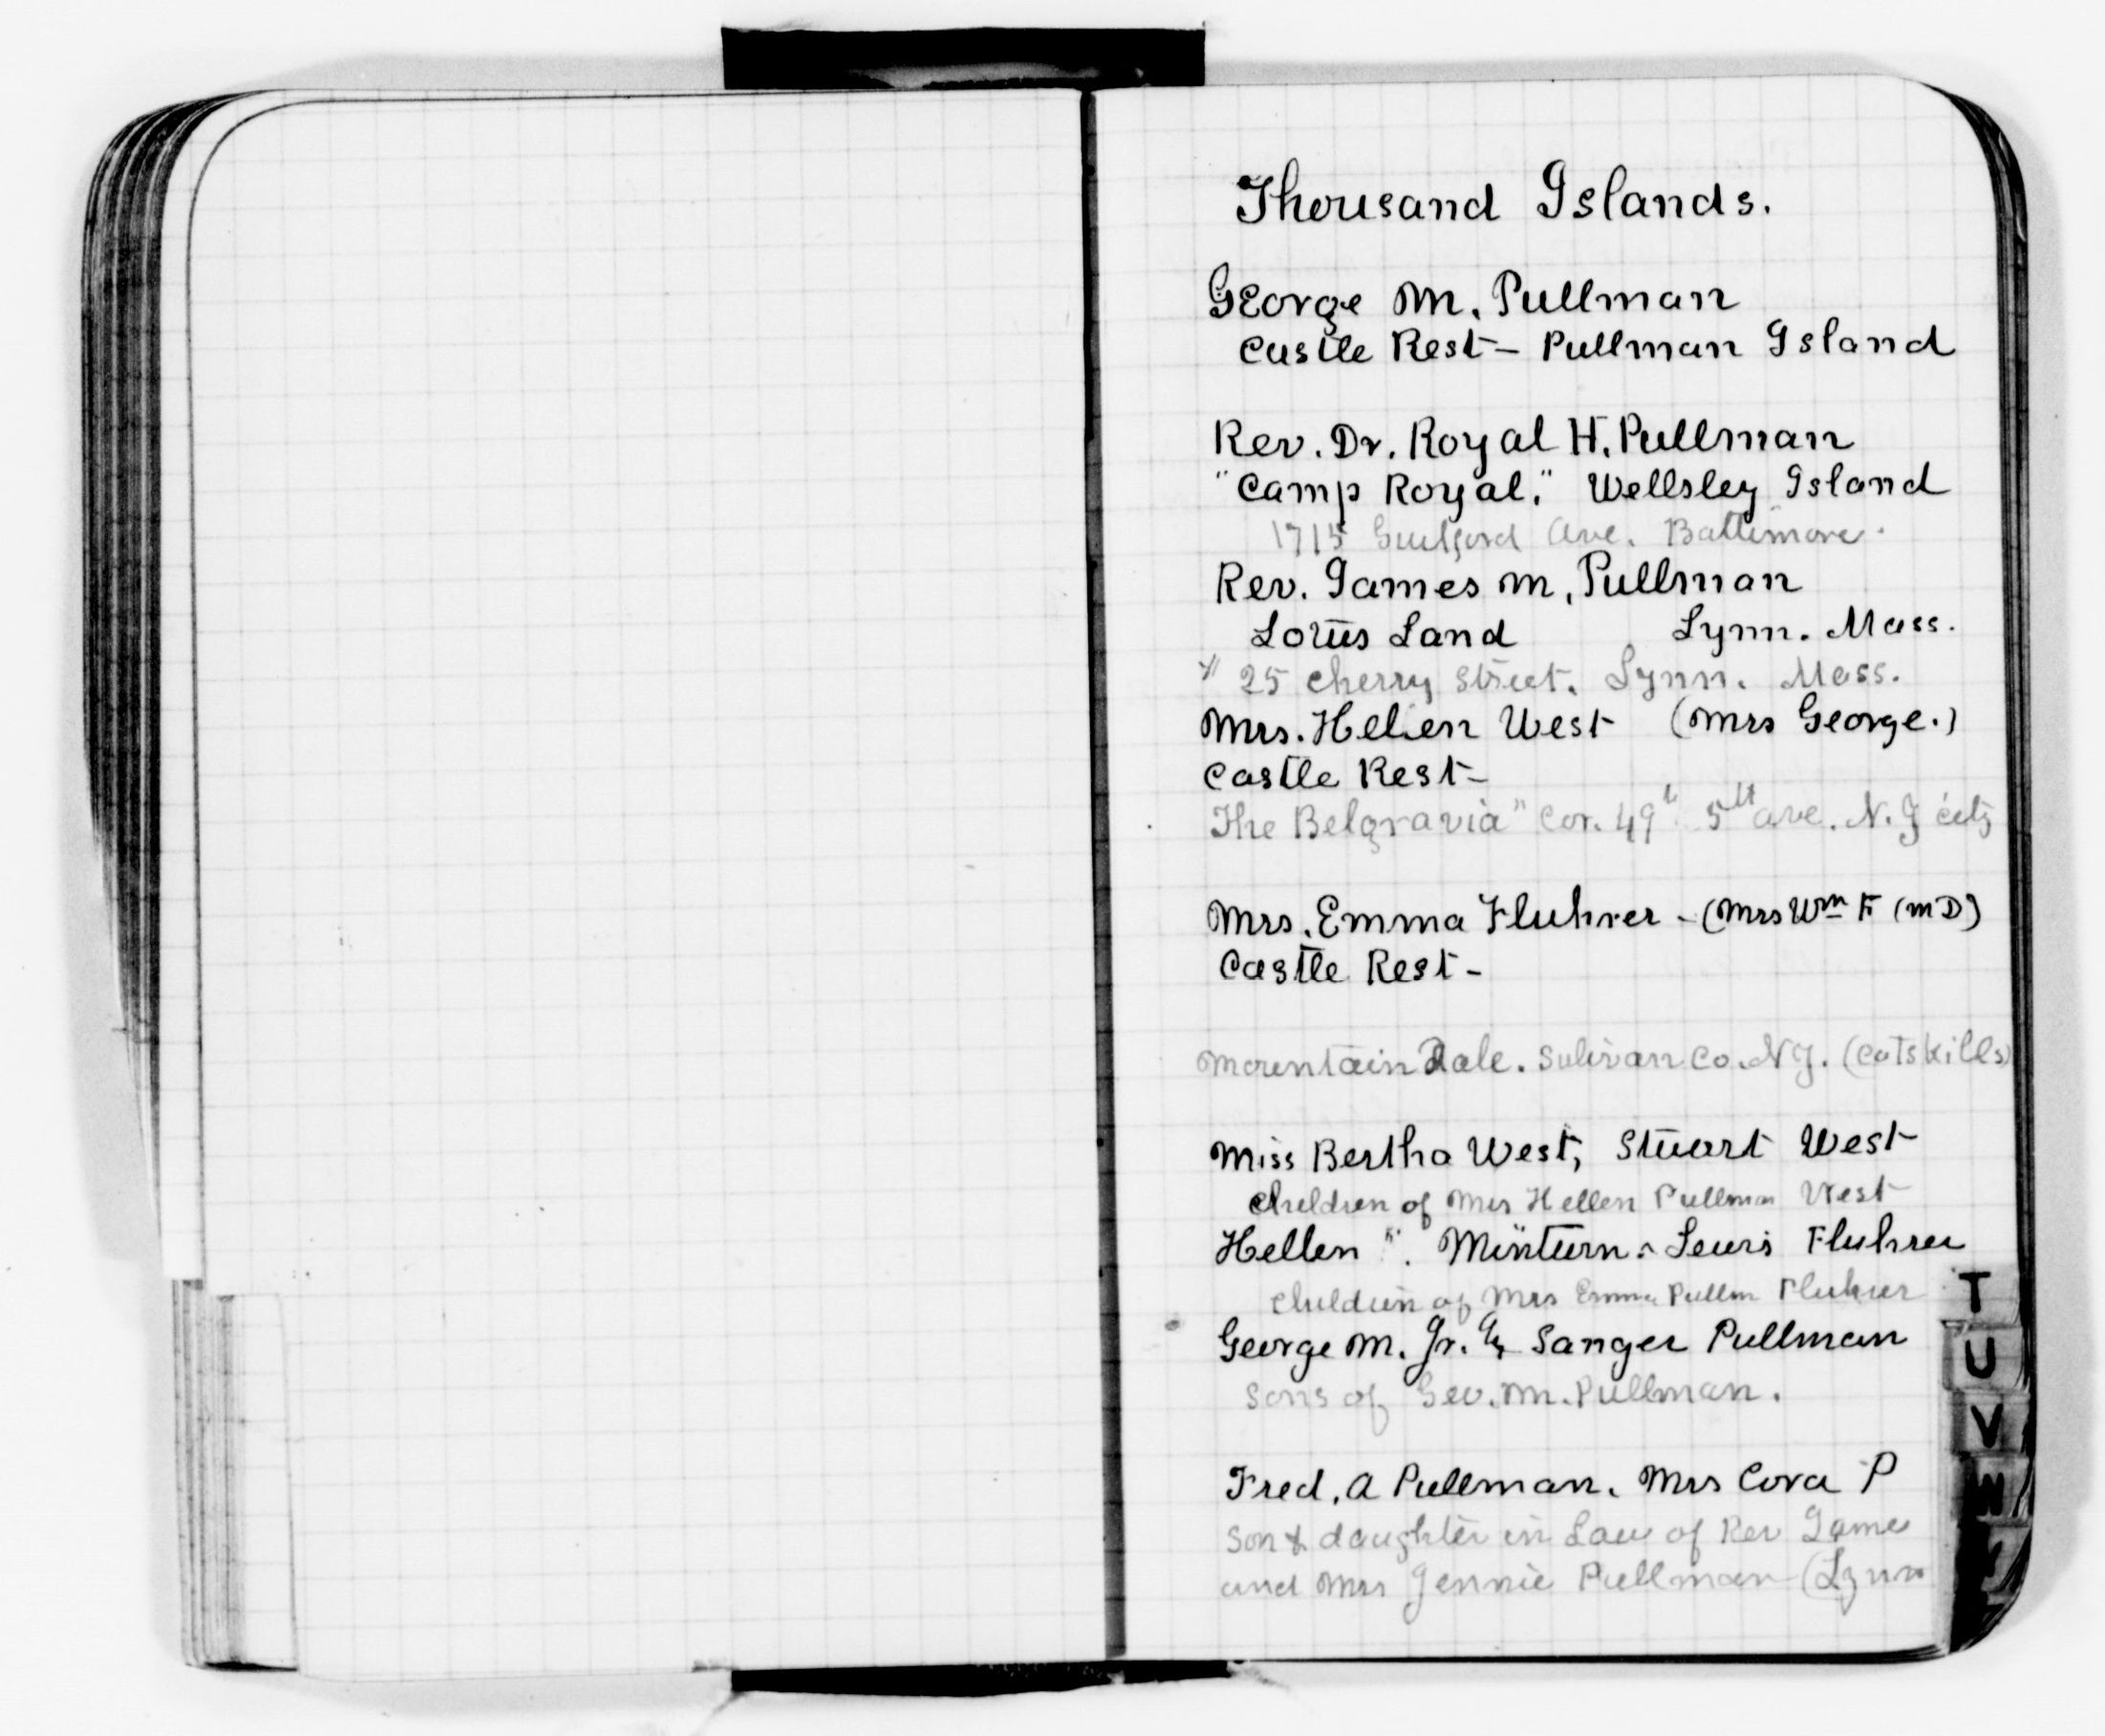 Thousand Islands.
George M. Pullman
Castle Rest – Pullman Island
Rev. Dr. Royal H. Pullman
"Camp Royal." Wellsley Island
1715 Guilford Ave. Baltimore.
Rev. James M. Pullman
Lotus Land Lynn. Mass.
25 Cherry Street. Lynn. Mass.
Mrs. Hellen West (Mrs George.)
Castle Rest –
The Belgravia" Cor. 49th 5th ave. N.Y city
Mrs. Emma Fluhrer – (Mrs Wm F (MD)
Castle Rest –
Mountain Dale. Sulivan Co. N.Y. (Catskills)
Miss Bertha West, Stuart West
Children of Mrs Hellen Pullman West
Hellen ". Minturn Lewis Fluhrer
Children of Mrs Emma Pullm Fluhrer
George M. Jr. & Sanger Pullman
Sons of Geo. M. Pullman.
Fred. A Pullman. Mrs Cora P
Son & daughter in Law of Rev James
and Mrs Jennie Pullman (Lynn
T
U
V
W